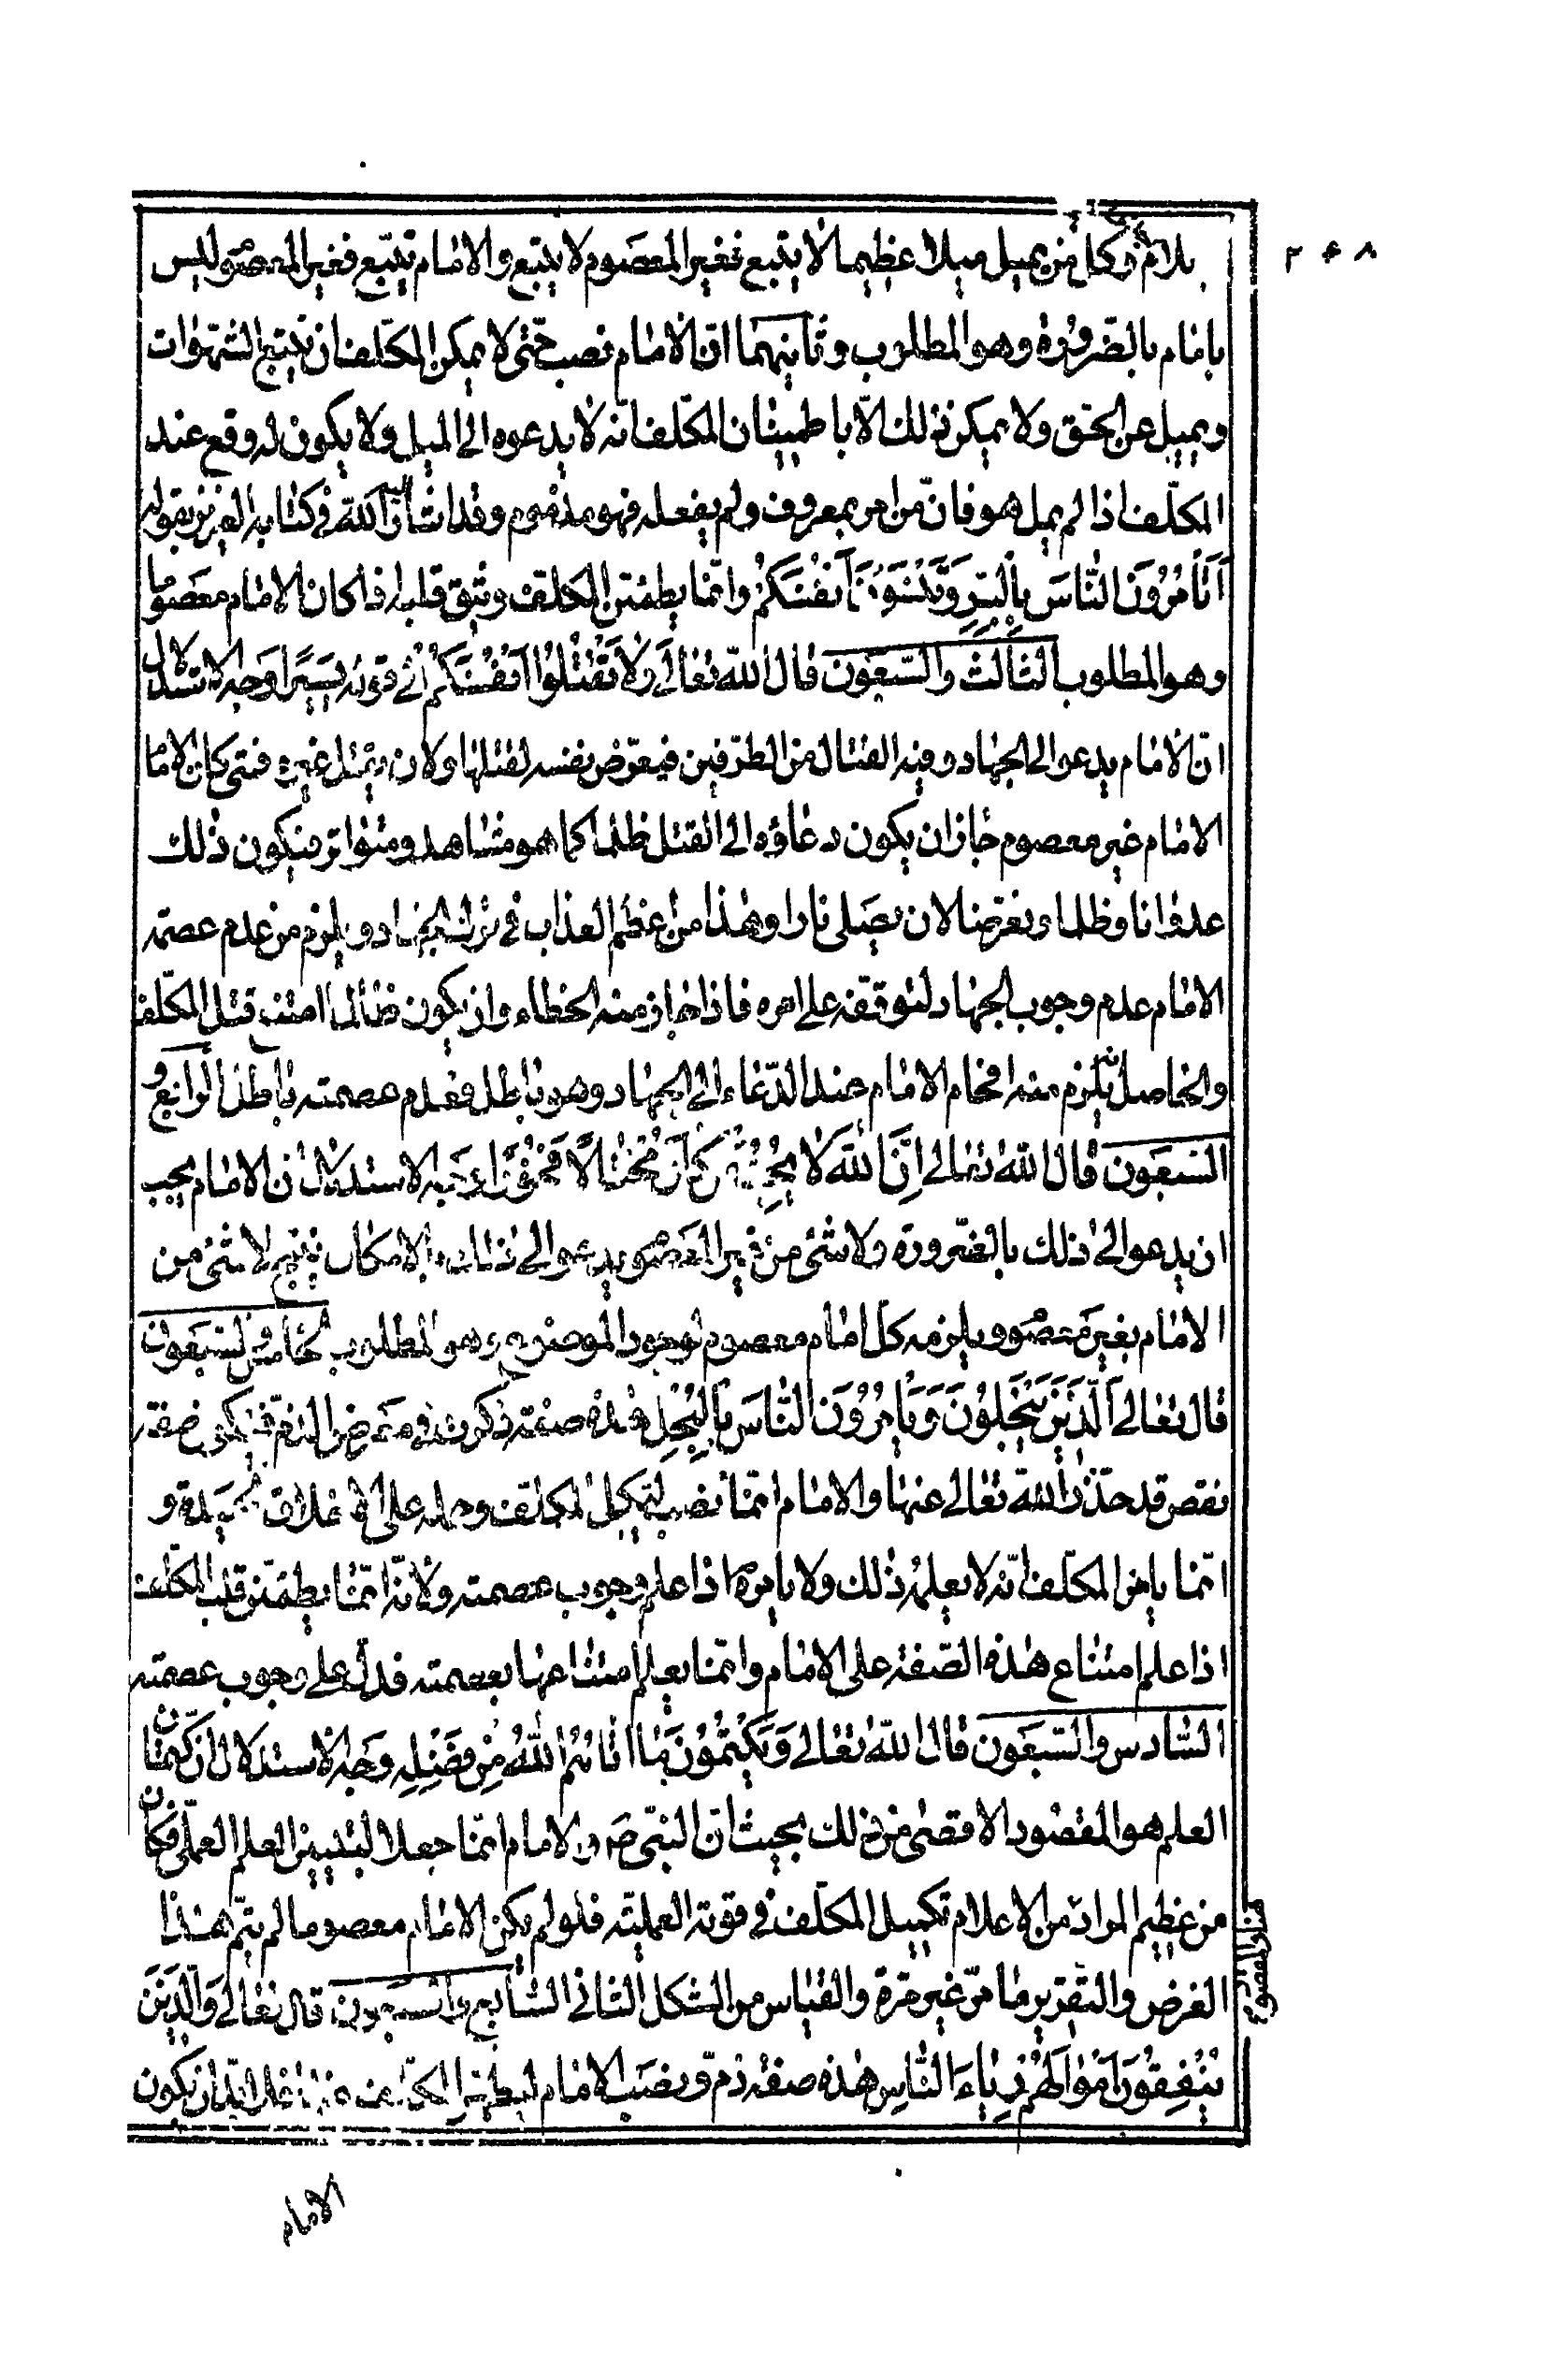 ۲۶۸
وكل من يميل ميلا عظيما لا يتبع فغير المعصوم لا يتبع والامام يتبع فغير المعصوم ليس
بامام بالضرورة وهو المطلوب وثانيهما ان الامام نصب حتى لا يمكن المكلف ان يتبع الشهوات
ويميل عن الحق ولا يمكن ذلك الا باطمينان المكلف انه لا يدعوه الى الميل ولا يكون له وقع عند
المكلف اذا لم يمل هو فان من امر بمعروف ولم يفعله فهو مذموم وقد اشار الله فى كتابه العزيز بقوله
اَتَأْمُرُونَ النّاسَ بِالْبِرِّ وَتَنْسَوْنَ اَنْفُسَكُمْ وانما يطمئن المكلف ويثق قلبه اذا كان الامام معصوما
وهو المطلوب الثالث والسبعون قال الله تعالى وَلا تَقْتُلُوا اَنْفُسَكُمْ الى قوله يَسيرًا وجه الاستدلال
ان الامام يدعو الى الجهاد وفيه القتال من الطرفين فيعرض نفسه لقتلها ولان يقتل غيره فمتى كان الاما
الامام غير معصوم جاز ان يكون دعاؤه الى القتل ظلما كما هو مشاهد ومتواتر فيكون ذلك
عدوانا وظلما وتعرضا لان يصلى نارا وهذا من اعظم العذاب فى ترك الجهاد ويلزم من عدم عصمة
الامام عدم وجوب الجهاد لتوقفه على امره فاذا جاز منه الخطاء وان يكون ظالما امتنع قتل المكلف
والحاصل انه يلزم منه افحام الامام عند الدعاء الى الجهاد وهو باطل فعدم عصمته باطل الرابع و
السبعون قال الله تعالى اِنَّ اللهَ لا يُحِبُّ مَنْ كانَ مُخْتالًا فَخُورًا وجه الاستدلال ان الامام يجب
ان يدعو الى ذلك بالضرورة ولا شىء من غير المعصوم يدعو الى ذلك بالامكان ينتج لا شىء من
الامام بغير معصوم ويلزمه كل امام معصوم لوجود الموضوع وهو المطلوب الخامس والسبعون
قال تعالى اَلَّذينَ يَبْخَلُونَ وَيَأْمُرُونَ النّاسَ بِالْبُخْلِ هذه صفة ذكرت فى معرض الذم فيكون صفة
نقص قد حذر الله تعالى عنها والامام انما نصب لتكميل المكلف وحمله على الاخلاق الحميدة و
انما يامن المكلف انه لا يعلمه ذلك ولا يامره اذا علم وجوب عصمته ولانه انما يطمئن قلب المكلف
اذا علم امتناع هذه الصفة على الامام وانما يعلم امتناعها بعصمته فدل على وجوب عصمته
السادس والسبعون قال الله تعالى وَيَكْتُمُونَ ما اتاهُمُ اللهُ مِنْ فَضْلِه وجه الاستدلال ان كتمان
العلم هو المقصود الاقصى من ذلك بحيث ان النبى ص والامام انما جعلا لتبيين العلم العملى فكان
من عظيم المراد من الاعلام تكميل المكلف فى قوته العملية فلو لم يكن الامام معصوما لم يتم هذا
الغرض والتقرير ما مر غير مرة والقياس من الشكل الثانى السابع والسبعون قال تعالى وَالَّذينَ
يُنْفِقُونَ اَمْوالَهُمْ رِئاءَ النّاسِ هذه صفة ذم ونصب الامام
الامام